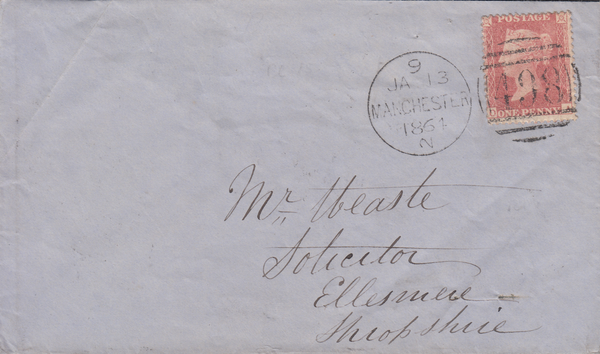 POSTAGE
9
JA 13
MANCHESTER
1864
N
498
ONE PENNY
Mr. Heaste
Solicitor
Ellesmere
Shropshire